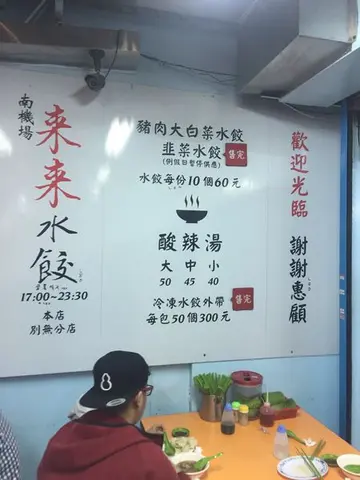 南機場
来来水餃
17:00~23:30
本店
別無分店
豬肉大白菜水餃
韭菜水餃 售完
(例假日暫停供應)
水餃每份10個60元
酸辣湯
大 中 小
50 45 40
冷凍水餃外帶 售完
每包50個300元
歡迎光臨
謝謝惠顧